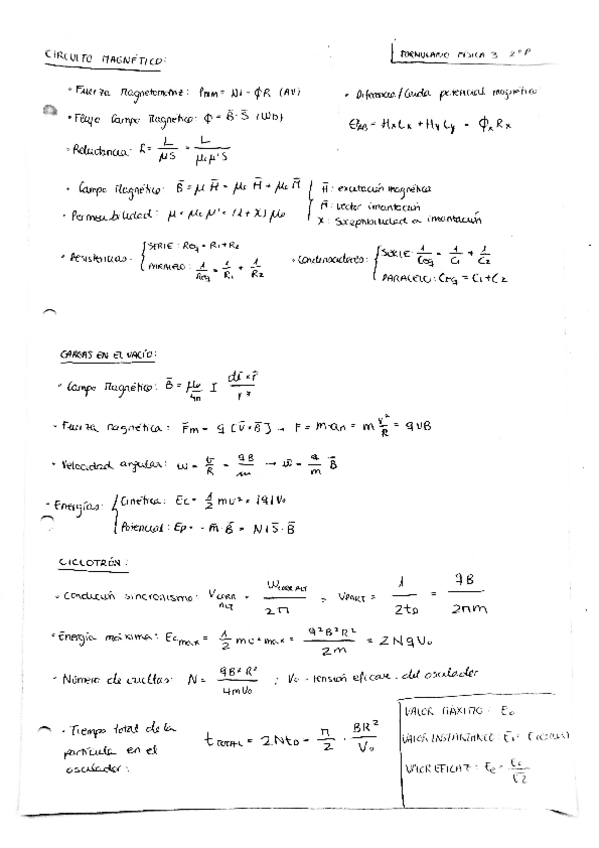 CIRCUITO MAGNÉTICO:
FORMULARIO FÍSICA 3 2º P
· Fuerza Magnetomotriz: Fmm = Ni = ΦR (AV)
· Diferencia/Caída potencial magnético:
· Flujo Campo Magnético: Φ = B̄·S̄ (Wb)
= HxLx + HyLy = ΦxRx
· Reluctancia: R = L/μS = L/μ₀μ'S
· Campo Magnético: B̄ = μH̄ = μ₀H̄ + μ₀M̄
H̄: excitación magnética
M̄: vector imantación
X: Susceptibilidad a imantación
· Permeabilidad: μ = μ₀μ' = (1+X)μ₀
· Resistencias: SERIE: Req = R1+R2
PARALELO: 1/Req = 1/R1 + 1/R2
· Condensadores: SERIE: 1/Ceq = 1/C1 + 1/C2
PARALELO: Ceq = C1+C2
CARGAS EN EL VACÍO:
· Campo Magnético: B̄ = μ₀/4π I dl̄×r̄/r³
· Fuerza magnética: F̄m = q[v̄×B̄] → F = m·an = m v²/R = qvB
· Velocidad angular: w = v/R = qB/m → w̄ = q/m B̄
· Energías: Cinética: Ec = 1/2 mv² = |q|V₀
Potencial: Ep = -m̄·B̄ = NiS̄·B̄
CICLOTRÓN:
· Condición sincronismo: VCORR ALT = WCORR ALT/2π = VPART = 1/2t₀ = qB/2πm
· Energía máxima: Ecmax = 1/2 mv²max = q²B²R²/2m = 2NqV₀
· Número de vueltas: N = qB²R²/4mV₀ ; V₀ = tensión eficaz del oscilador
· Tiempo total de la
partícula en el
oscilador:
tTOTAL = 2Nt₀ = π/2 · BR²/V₀
VALOR MÁXIMO: E₀
VALOR INSTANTÁNEO:
VALOR EFICAZ: Ee = E₀/√2